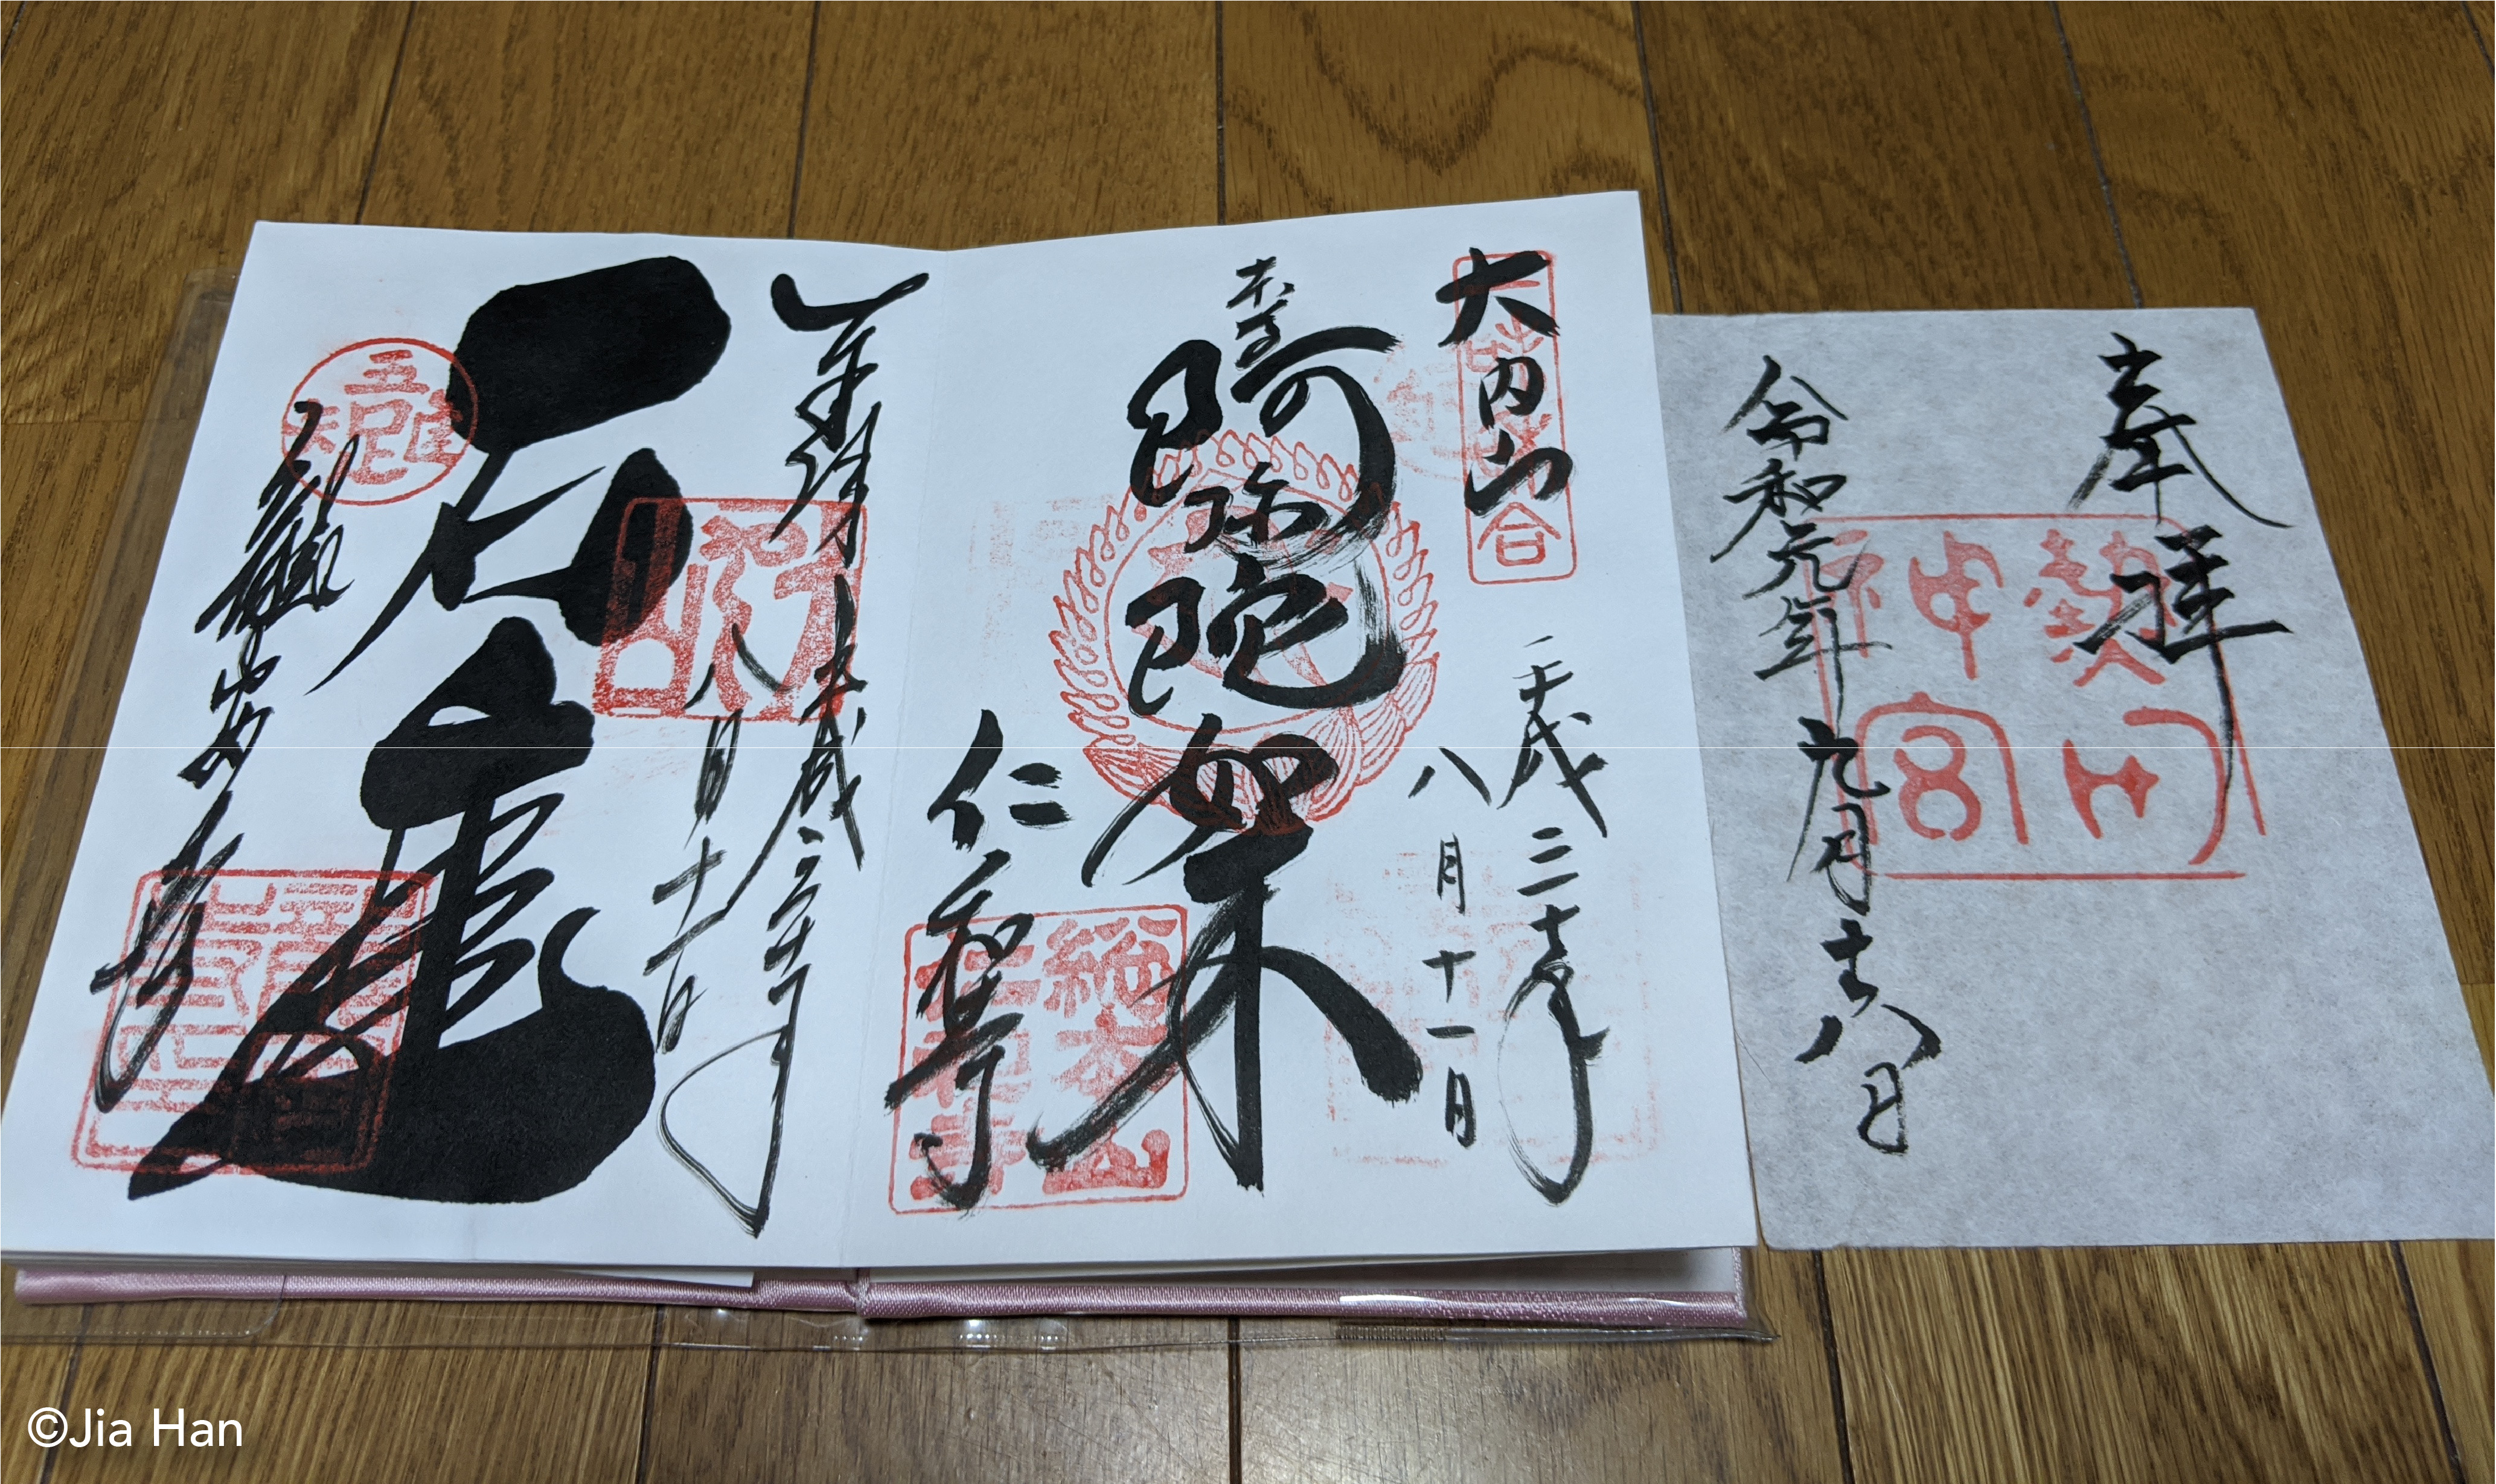 奉拝
熱田
神宮
令和元年九月十八日
大内山
平成三十年
八月十一日
本尊
阿弥陀如来
総本山
仁和寺
仁和寺
奉拝
平成三十年
八月十一日
石庭
龍安寺
©Jia Han